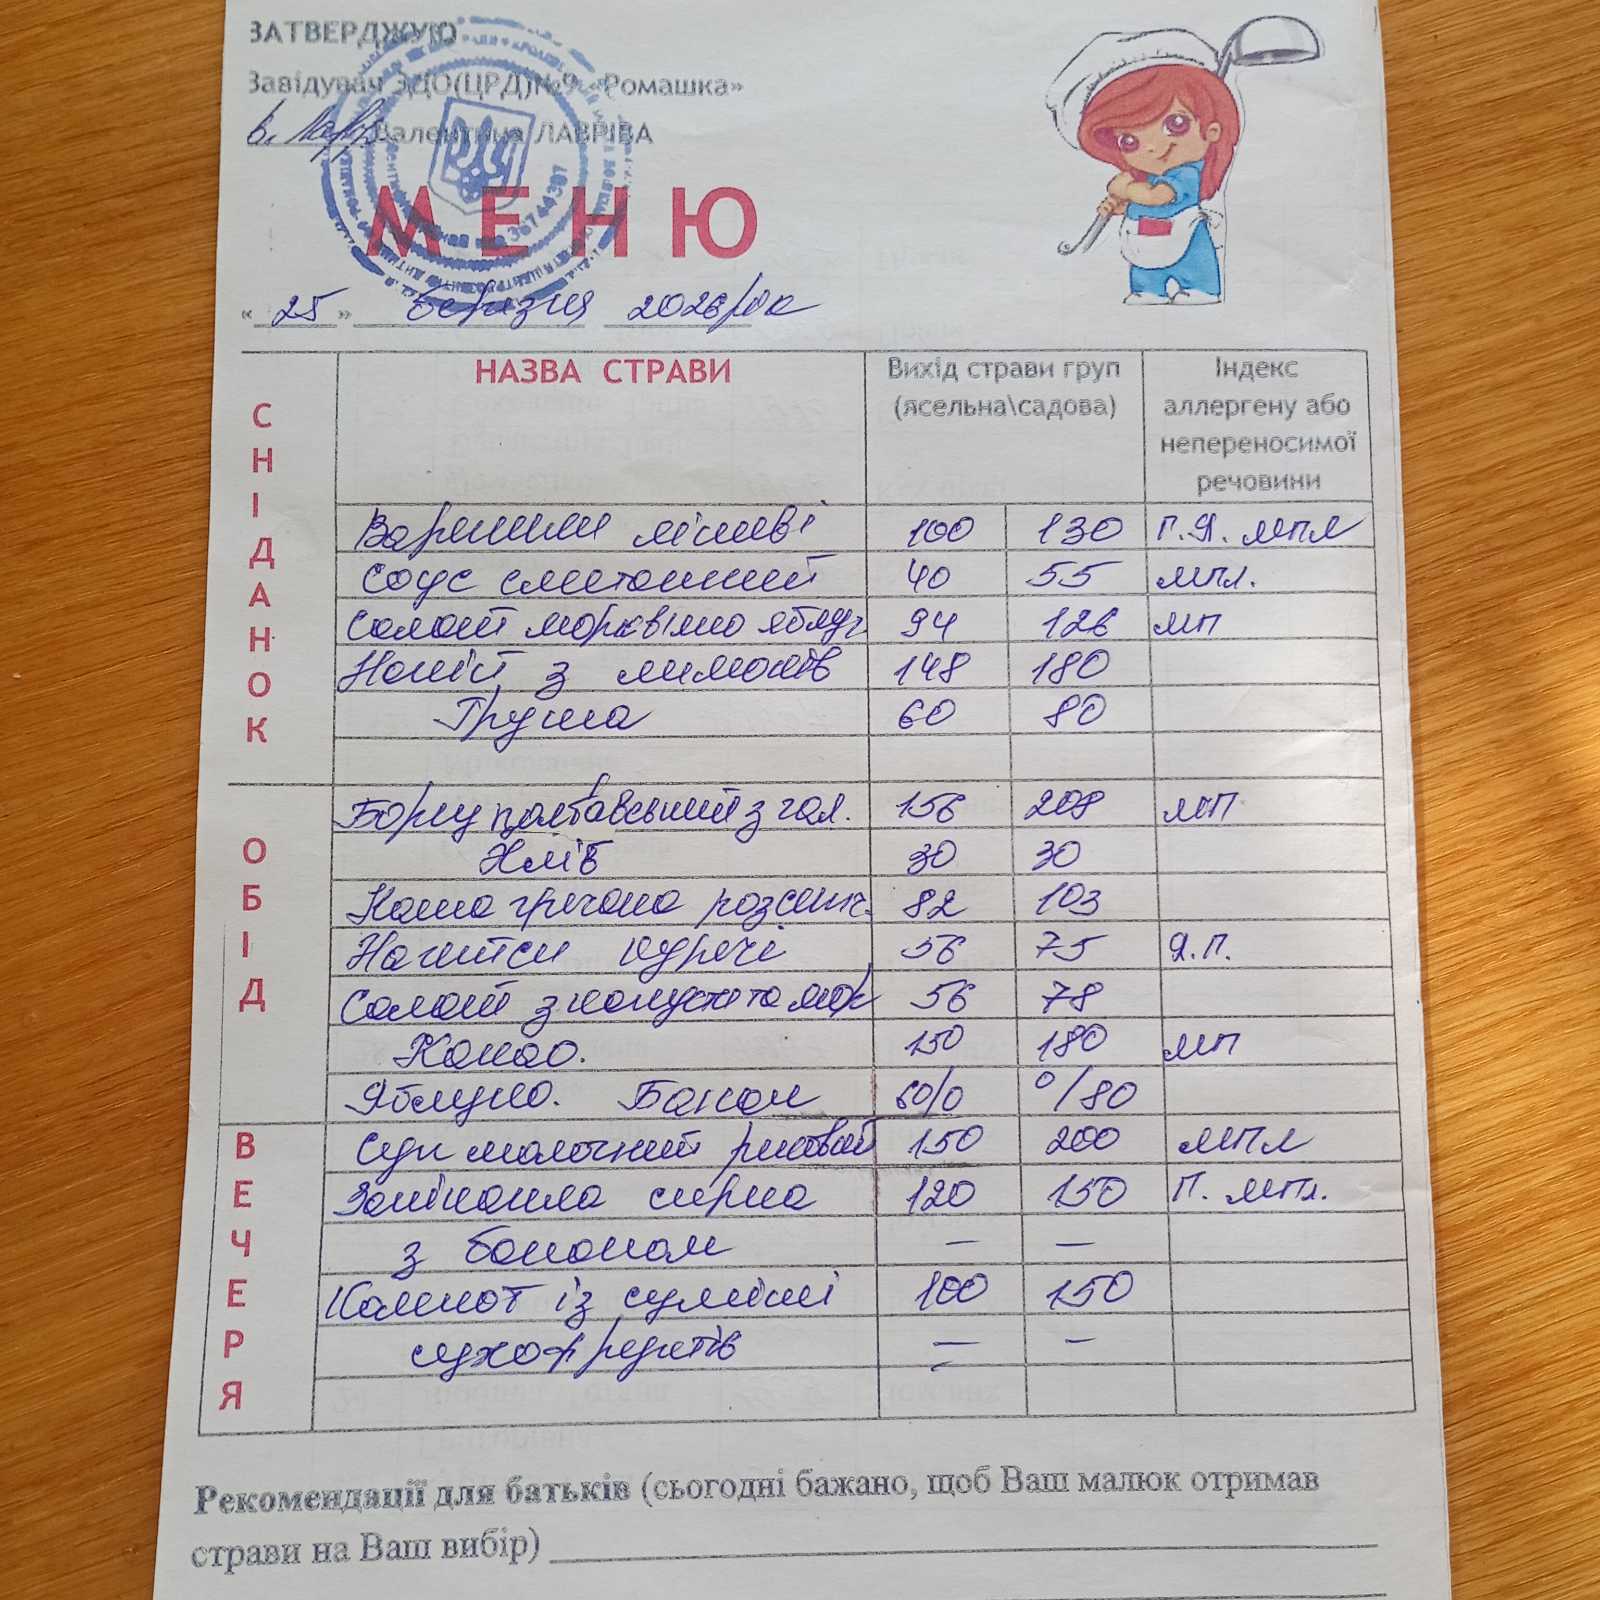 ЗАТВЕРДЖУЮ
Завідувач ЗДО(ЦРД)№9 «Ромашка»
В. Лавр Валентина ЛАВРІВА
МЕНЮ
«25» березня 2026 рік
НАЗВА СТРАВИ Вихід страви груп (ясельна\садова) Індекс аллергену або непереносимої речовини
СНІДАНОК
Вареники ліниві 100 130 Г.Я. МПЛ
Соус сметанний 40 55 МПЛ.
Салат морквяно яблуч 94 126 МП
Напій з лимонів 148 180
Груша 60 80
ОБІД
Борщ полтавський з гал. 156 208 МП
Хліб 30 30
Каша гречана розсипч. 82 103
Нагитси курячі 56 75 Я.П.
Салат з капусти та морк 56 78
Какао. 150 180 МП
Яблуко. Банан 60/0 0/80
ВЕЧЕРЯ
Суп молочний рисовий 150 200 МПЛ
Запіканка сирна 120 150 П. МПЛ.
з бананом — —
Компот із суміші 100 150
сухофруктів — —
Рекомендації для батьків (сьогодні бажано, щоб Ваш малюк отримав
страви на Ваш вибір)